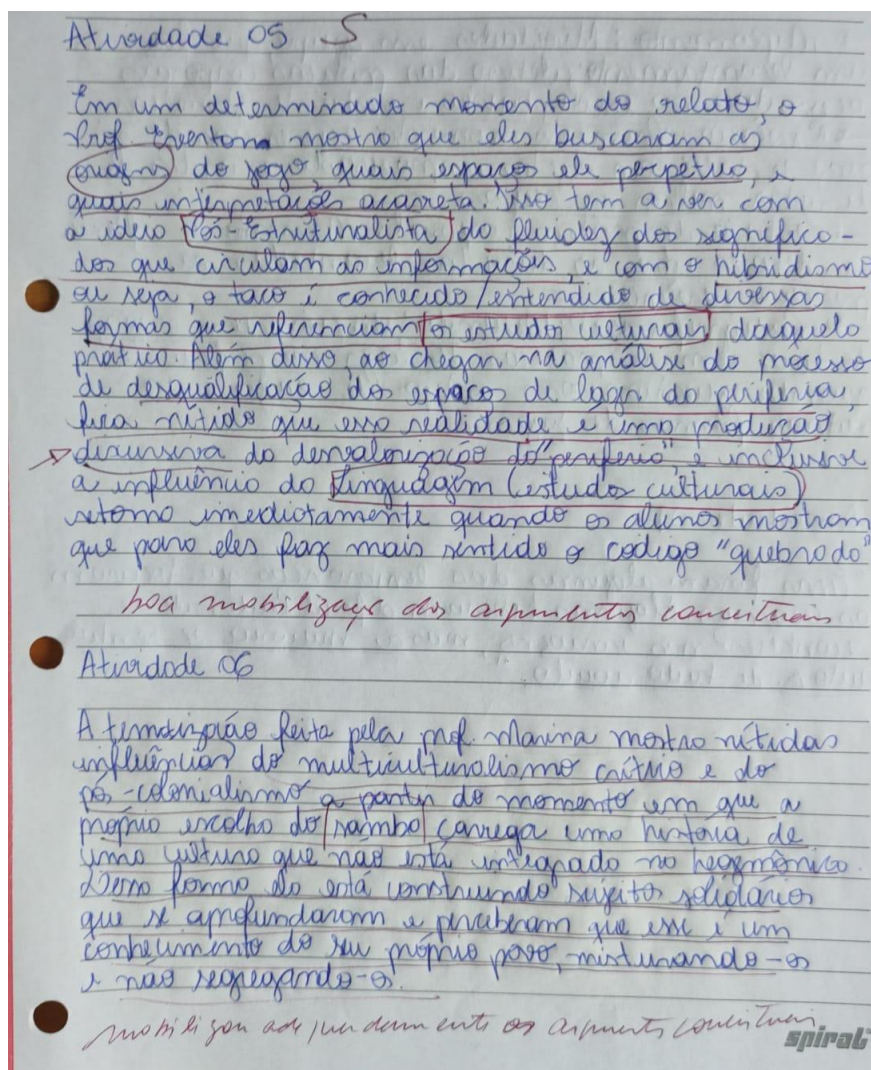 Atividade 05 S
Em um determinado momento do relato, o
Prof. Everton mostra que eles buscaram as
origens do jogo, quais espaços ele perpetua, e
quais interpretações acarreta. Isso tem a ver com
a ideia Pós-Estruturalista da fluidez dos significa-
dos que circulam as informações, e com o hibridismo
ou seja, o taco é conhecido/entendido de diversas
formas que referenciam os estudos culturais daquela
prática. Além disso, ao chegar na análise do processo
de desqualificação dos espaços de lazer da periferia,
fica nítido que essa realidade é uma produção
discursiva da desvalorização da "periferia", e inclusive
a influência da linguagem (estudos culturais)
retorna imediatamente quando os alunos mostram
que para eles faz mais sentido o código "quebrada"
boa mobilização dos argumentos conceituais
Atividade 06
A tematização feita pela prof. Marina mostra nítidas
influências do multiculturalismo crítico e do
pós-colonialismo a partir do momento em que a
própria escolha do samba carrega uma história de
uma cultura que não está integrada no hegemônico.
Dessa forma ela está construindo sujeitos solidários
que se aprofundaram e perceberam que esse é um
conhecimento do seu próprio povo, misturando-os
e não segregando-os.
mobilizou adequadamente os argumentos conceituais
spiral